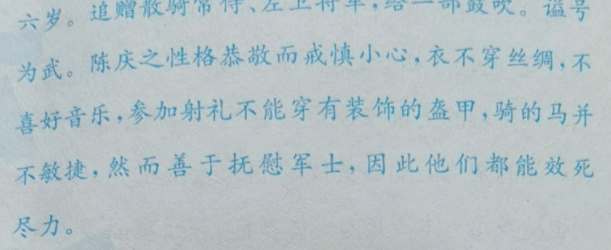 六岁。追赠散骑常侍、左卫将军,给一部鼓吹。谥号
为武。陈庆之性格恭敬而戒慎小心,衣不穿丝绸,不
喜好音乐,参加射礼不能穿有装饰的盔甲,骑的马并
不敏捷,然而善于抚慰军士,因此他们都能效死
尽力。